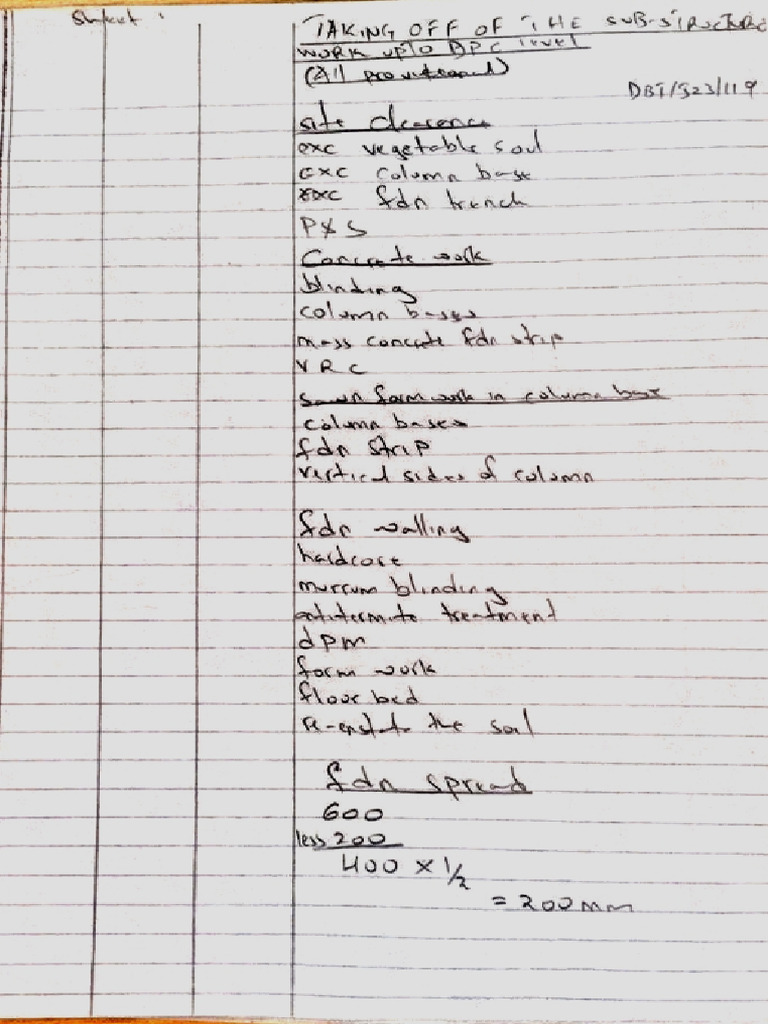 TAKING OFF OF THE SUB-STRUCTURE
WORK UPTO DPC level
(All provisional)
DBT/323/119
site clearance
exc vegetable soil
exc column base
exc fdn trench
P & S
Concrete work
blinding
column bases
mass concrete fdn strip
V R C
sawn formwork in column base
column bases
fdn strip
vertical sides of column
fdn walling
hardcore
murrum blinding
antitermite treatment
dpm
form work
floor bed
the soil
fdn spread
600
less 200
400 x 1/2
= 200mm